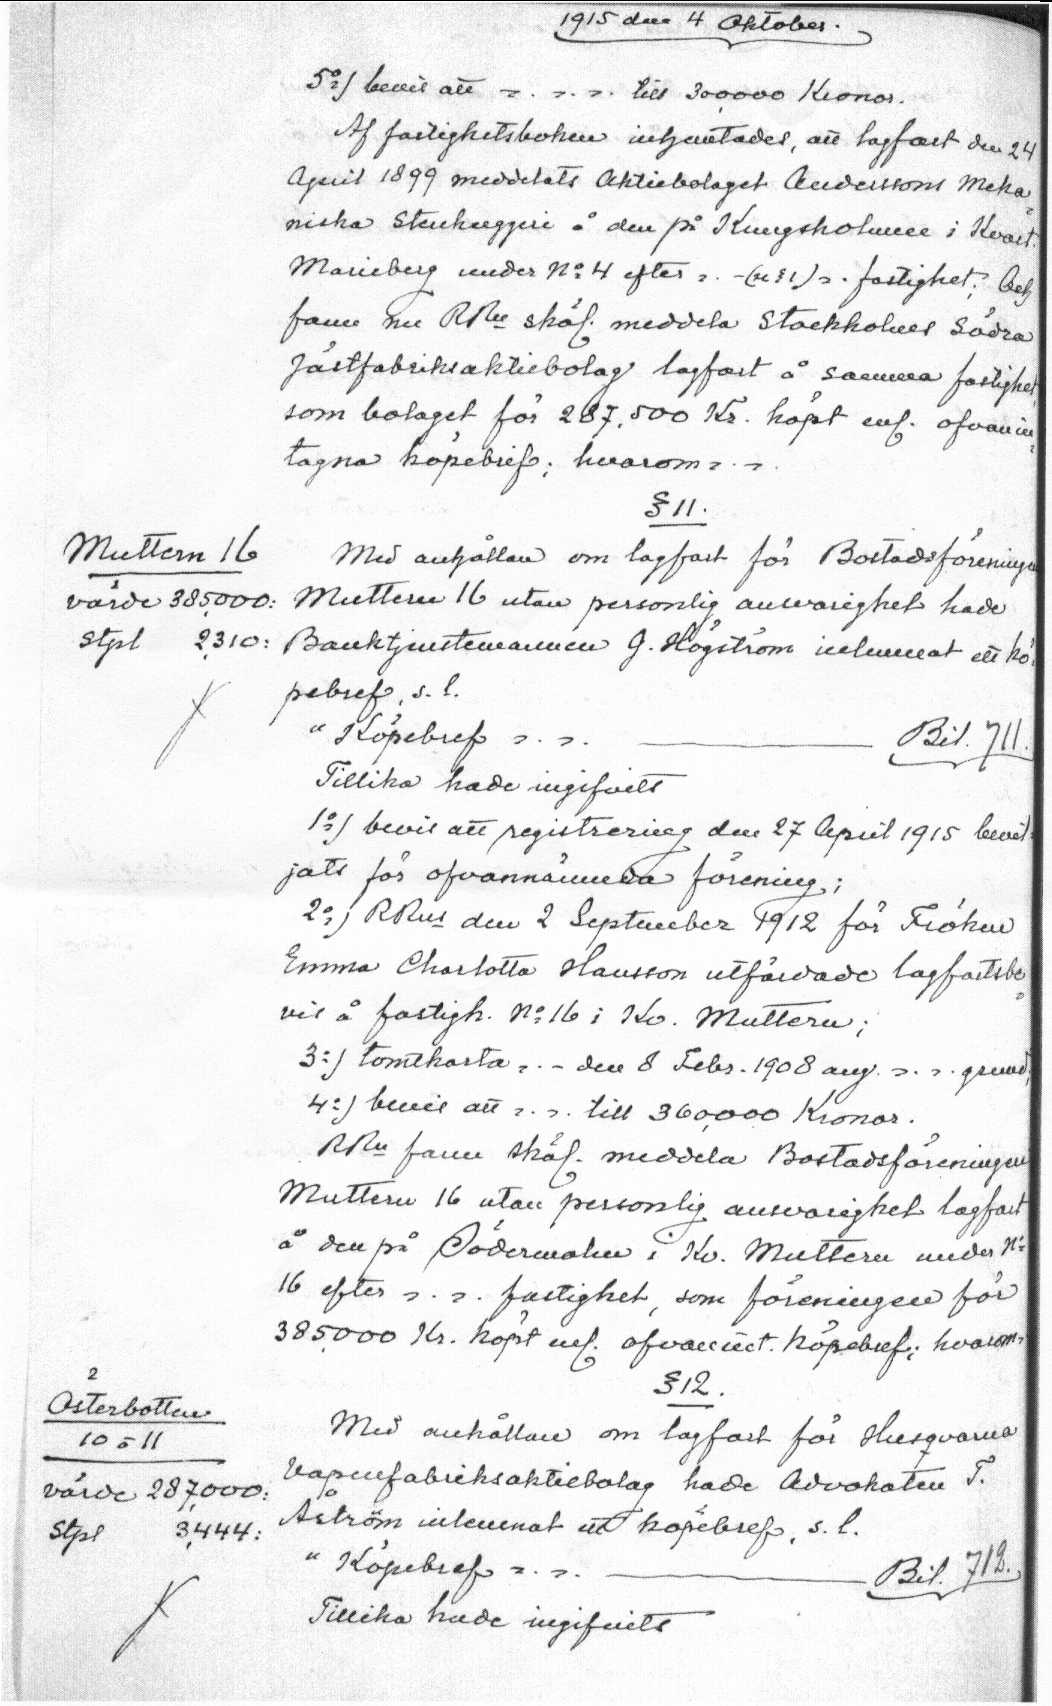 1915 den 4 Oktober.
5:o) bevis att =.=.=. till 300,000 Kronor.
Af fastighetsboken inhämtades, att lagfart den 24
April 1899 meddelats Aktiebolaget Anderssons Meka-
niska Stenhuggeri å den på Kungsholmen i Kvart.
Marieberg under No: 4 efter =.-(se §1)=. fastighet; Och
fann nu RRn skäl. meddela Stockholms Södra
Jästfabriksaktiebolag lagfart å samma fastighet
som bolaget för 287,500 Kr. köpt enl. ofvan in-
tagna köpebref; hvarom=.=.
§ 11.
Muttern 16
värde 385,000:
Stpl 2,310:
Med anhållan om lagfart för Bostadsföreningen
Muttern 16 utan personlig ansvarighet hade
Banktjenstemannen G. Högström inlemnat ett kö-
pebref, s. l.
" Köpebref =.=. Bil. 711.
Tillika hade ingifvits
1:o) bevis att registrering den 27 April 1915 bevil-
jats för ofvannämnda förening;
2:o) RRns den 2 September 1912 för Fröken
Emma Charlotta Hansson utfärdade lagfartsbe-
vis å fastigh. No: 16 i Kv. Muttern;
3:) tomtkarta =.- den 8 Febr. 1908 ang. =.=. grund;
4:) bevis att =.=. till 360,000 Kronor.
RRn fann skäl. meddela Bostadsföreningen
Muttern 16 utan personlig ansvarighet lagfart
å den på Södermalm i Kv. Muttern under No:
16 efter =.=. fastighet, som föreningen för
385,000 Kr. köpt enl. ofvanint. köpebref; hvarom=
§ 12.
2
Österbotten
10 o 11
värde 287,000:
Stpl 3,444:
Med anhållan om lagfart för Husqvarna
Vapenfabriksaktiebolag hade Advokaten F.
Åström inlemnat ett köpebref, s. l.
" Köpebref =.=. Bil. 712.
Tillika hade ingifvits